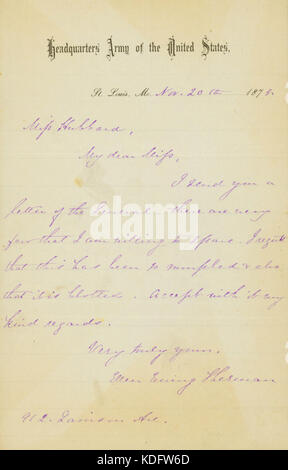 Headquarters Army of the United States.
St. Louis, Mo. Nov. 20th 1875.
Miss Hubbard,
My dear Miss,
I send you a
letter of the General - there are very
few that I am willing to spare. I regret
that this has been so rumpled & also
that it is blotted. Accept with it my
kind regards.
Very truly yours,
Ellen Ewing Sherman
912 Garrison Ave.
alamy
Image ID: KDFW6D
www.alamy.com